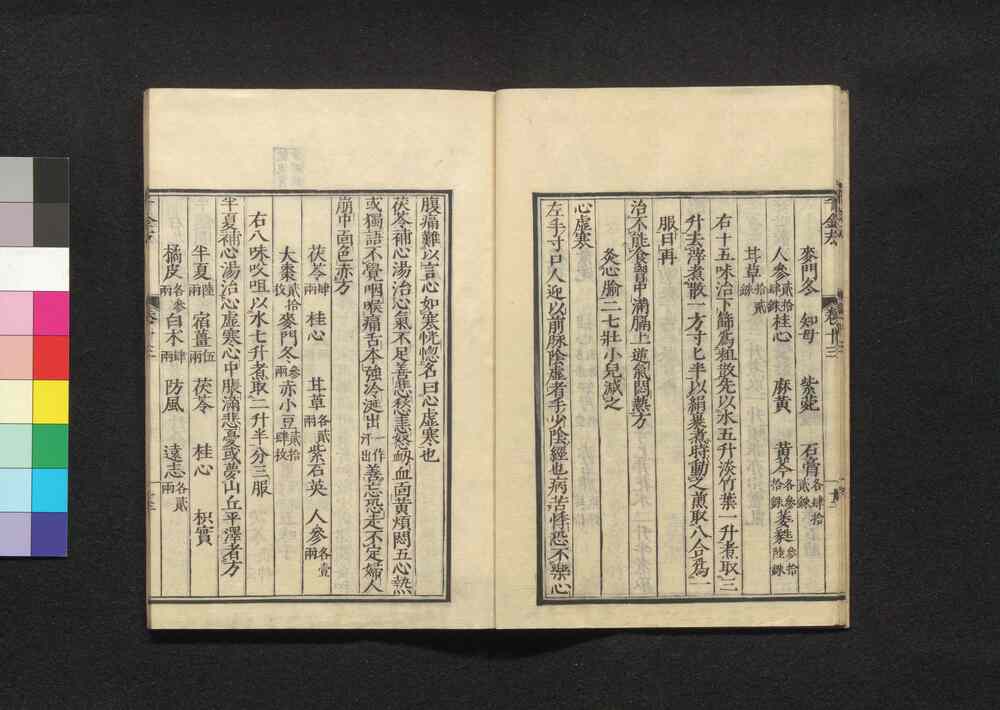 麥門冬 知母 紫菀 石膏各肆拾貳銖
人參貳拾肆銖 桂心 麻黃 黃芩各參拾銖 萎蕤參拾陸銖
甘草拾貳銖
右十五味治下篩爲粗散先以水五升淡竹葉一升煮取三
升去滓煮散一方寸匕半以絹裹煮時動之煎取八合爲一
服日再
治不能食胷中滿膈上逆氣悶熱方
灸心腧二七壯小兒減之
心虛寒
左手寸口人迎以前脉陰虛者手少陰經也病苦悸恐不樂心
腹痛難以言心如寒恍惚名曰心虛寒也
茯苓補心湯治心氣不足善悲愁恚怒衂血面黃煩悶五心熱
或獨語不覺咽喉痛舌本強冷涎出一作汗出善忘恐走不定婦人
崩中面色赤方
茯苓肆兩 桂心 甘草各貳兩 紫石英 人參各壹兩
大棗貳拾枚 麥門冬參兩 赤小豆貳拾肆枚
右八味㕮咀以水七升煮取二升半分三服
半夏補心湯治心虛寒心中脹滿悲憂或夢山丘平澤者方
半夏陸兩 宿薑伍兩 茯苓 桂心 枳實
橘皮各參兩 白术肆兩 防風 遠志各貳兩